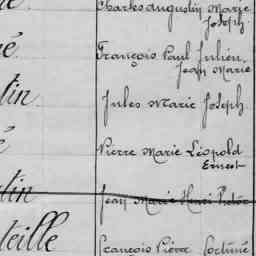 Charles Augustin Marie
Joseph
François Paul Julien
Jean Marie
tin
Jules Marie Joseph
Pierre Marie Léopold
Ernest
tin
Jean Marie Henri
teille
François Pierre Fortuné